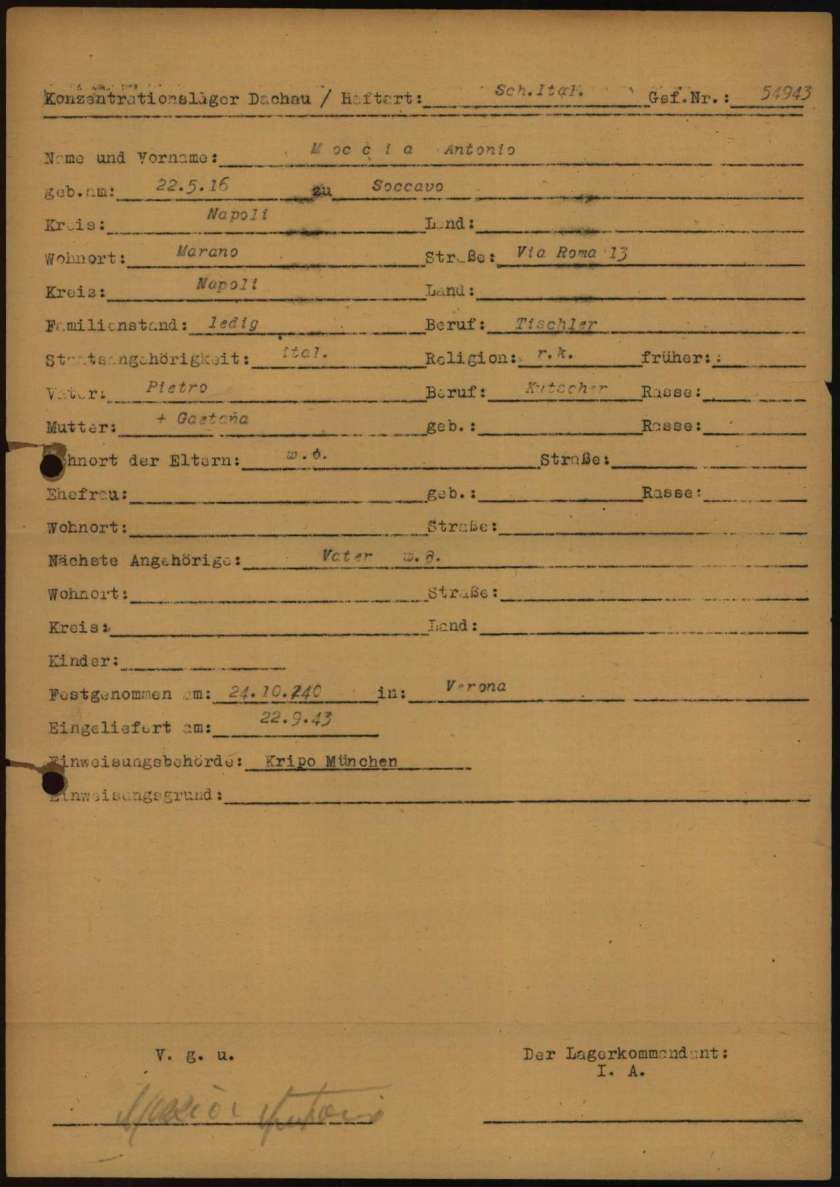 Konzentrationslager Dachau / Haftart: Sch.Ital. Gef.Nr.: 54943
Name und Vorname: Moccia Antonio
geb.am: 22.5.16 zu Soccavo
Kreis: Napoli Land:
Wohnort: Marano Straße: Via Roma 13
Kreis: Napoli Land:
Familienstand: ledig Beruf: Tischler
Staatsangehörigkeit: ital. Religion: r.k. früher:
Vater: Pietro Beruf: Kutscher Rasse:
Mutter: + Gaetana geb.: Rasse:
Wohnort der Eltern: w.o. Straße:
Ehefrau: geb.: Rasse:
Wohnort: Straße:
Nächste Angehörige: Vater w.o.
Wohnort: Straße:
Kreis: Land:
Kinder:
Festgenommen am: 24.10. in: Verona
Eingeliefert am: 22.9.43
Einweisungsbehörde: Kripo München
Einweisungsgrund:
V. g. u. Der Lagerkommandant:
I. A.